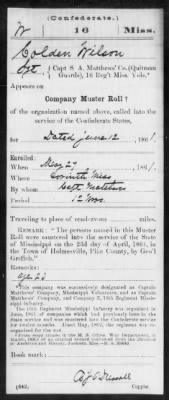 (Confederate.)
W 16 Miss.
Colden Wilson
Capt S. A. Matthews' Co. (Quitman
Guards), 16 Reg't Miss. Vols.*
Appears on
Company Muster Roll †
of the organization named above, called into the
service of the Confederate States,
for
Dated June 12, 1861.
Enrolled:
When May 27, 1861.
Where Corinth Miss
By whom Capt. Matthews
Period 12 mos.
Traveling to place of rendezvous miles.
REMARK: "The persons named in this Muster
Roll were mustered into the service of the State
of Mississippi on the 23d day of April, 1861, in
the Town of Holmesville, Pike County, by Gen'l
Griffith."
Remarks:
Age 23
*This company was successively designated as Captain
Matthews' Company, Mississippi Volunteers, and as Captain
Matthews' Company and Company E, 16th Regiment Mississippi
Infantry.
The 16th Regiment Mississippi Infantry was organized in
June, 1861, of companies which had previously been in the
State service and was mustered into the Confederate service
for twelve months. About May, 1862, the regiment was
for the war.
Book mark:
(642) Copyist.